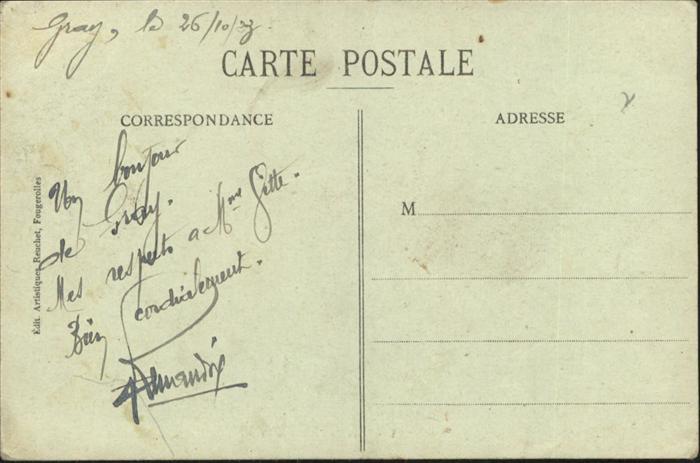 Gray, le 26/10/33
CARTE POSTALE
CORRESPONDANCE
ADRESSE
Un bonjour
de Gray.
Mes respects a Mme Gette.
Bien cordialement.
M
Édit. Artistiques Reuchet, Fougerolles